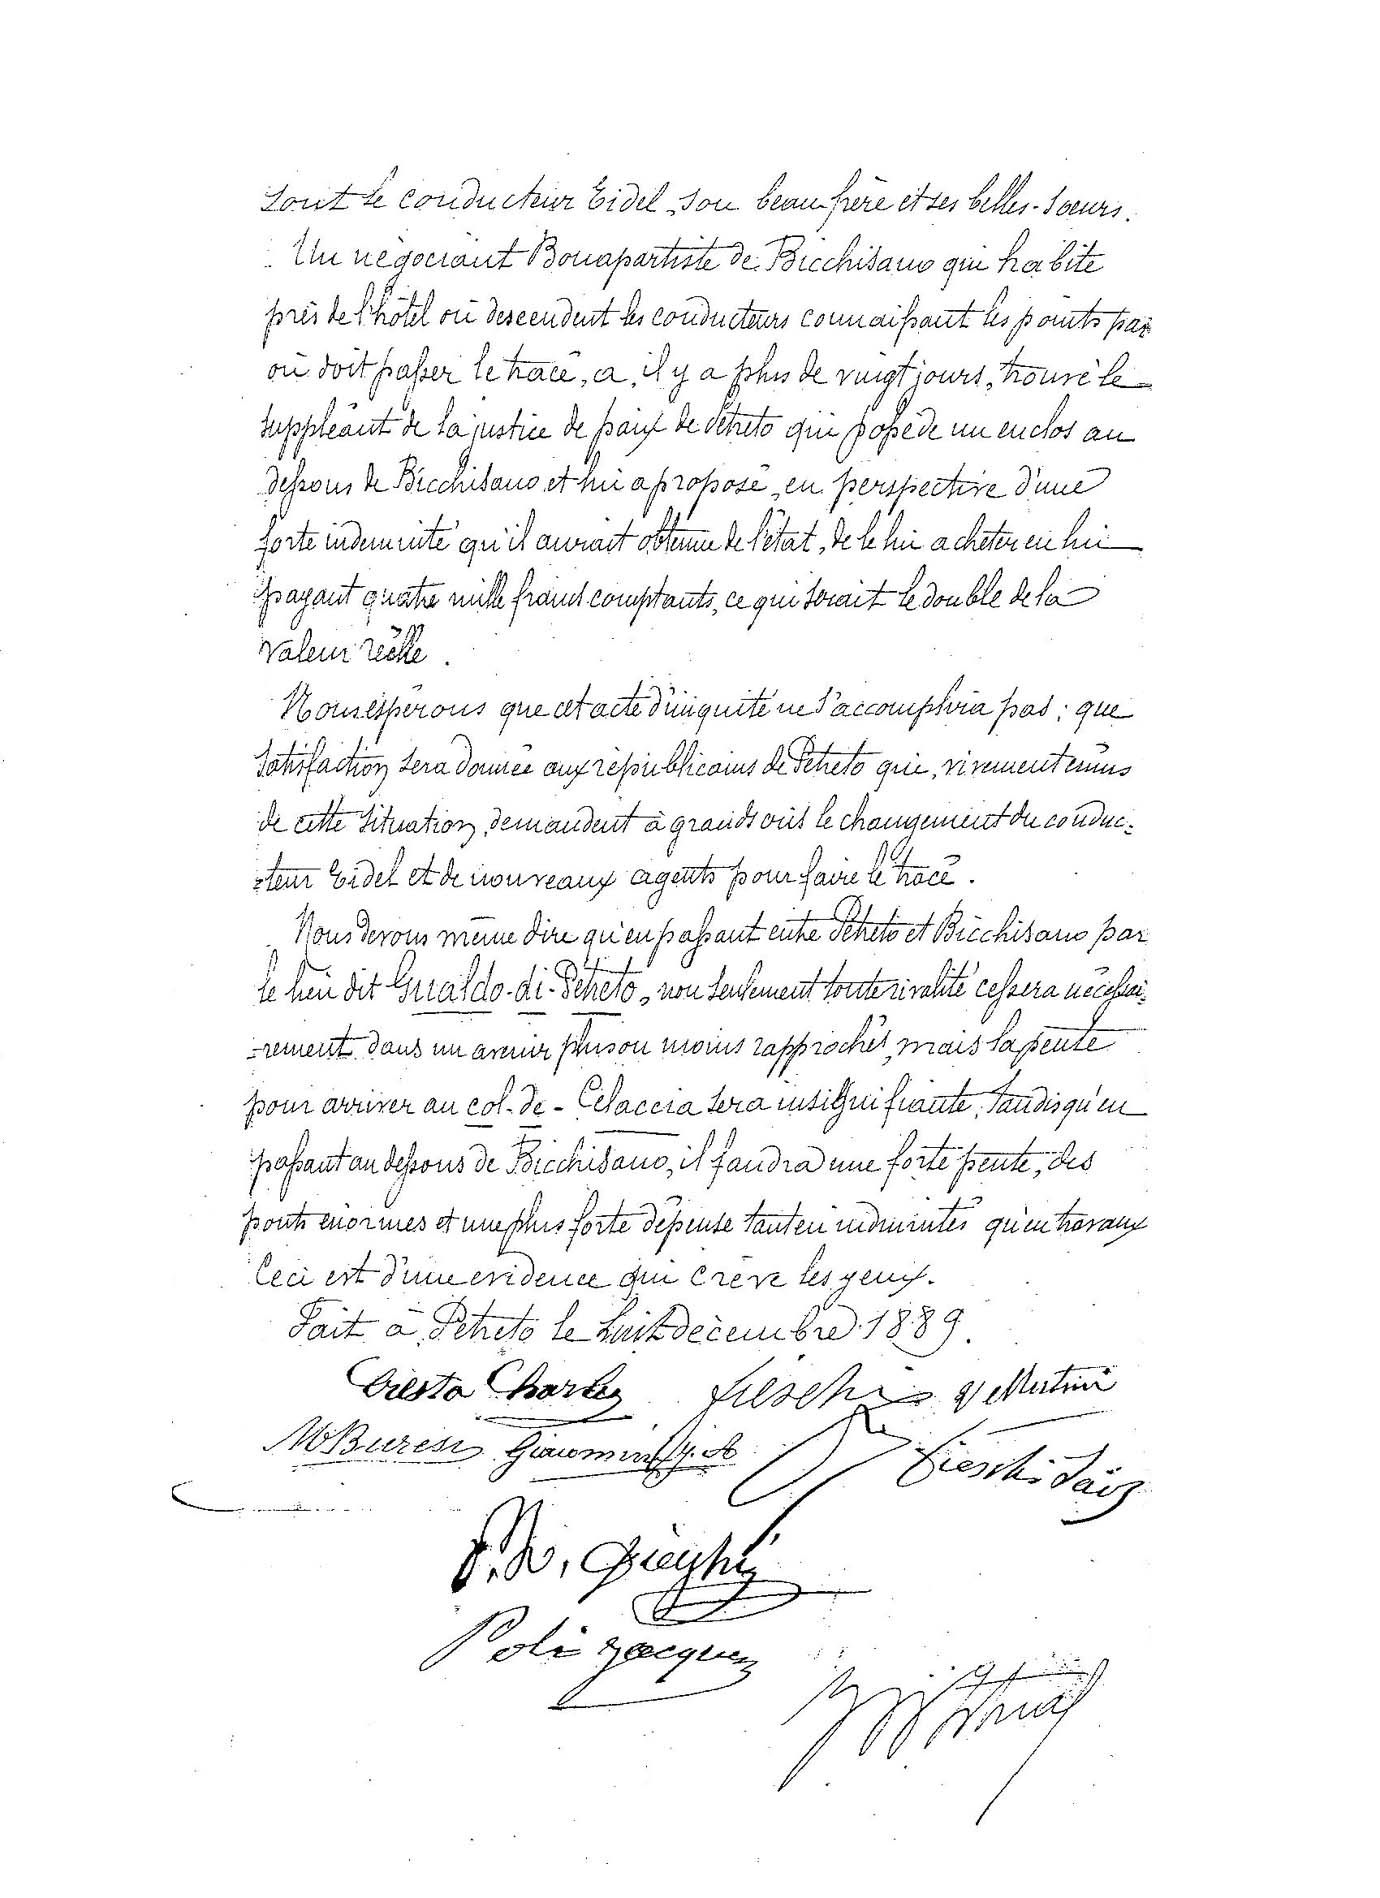 sont le conducteur Eidel, son beau-frère et ses belles-sœurs.
Un négociant Bonapartiste de Bicchisano qui habite
près de l'hôtel où descendent les conducteurs connaissant les points par
où doit passer le tracé, a, il y a plus de vingt jours, trouvé le
suppléant de la justice de paix de Pétreto qui possède un enclos au
dessous de Bicchisano et lui a proposé, en perspective d'une
forte indemnité qu'il aurait obtenue de l'état, de le lui acheter en lui
payant quatre mille francs comptants, ce qui serait le double de la
valeur réelle.
Nous espérons que cet acte d'iniquité ne s'accomplira pas ; que
satisfaction sera donnée aux républicains de Pétreto qui, vivement émus
de cette situation, demandent à grands cris le changement du conduc-
-teur Eidel et de nouveaux agents pour faire le tracé.
Nous devons même dire qu'en passant entre Pétreto et Bicchisano par
le lieu dit Gualdo-di-Pétreto, non seulement toute rivalité cessera nécessai-
-rement dans un avenir plus ou moins rapproché, mais la pente
pour arriver au col-de-Celaccia sera insignifiante, tandis qu'en
passant au dessous de Bicchisano, il faudra une forte pente, des
ponts énormes et une plus forte dépense tant en indemnités qu'en travaux
Ceci est d'une evidence qui crève les yeux.
Fait à Pétreto le huit décembre 1889.
Charles Fieschi
Buresi Giacomini
Fieschi
Poli Jacques